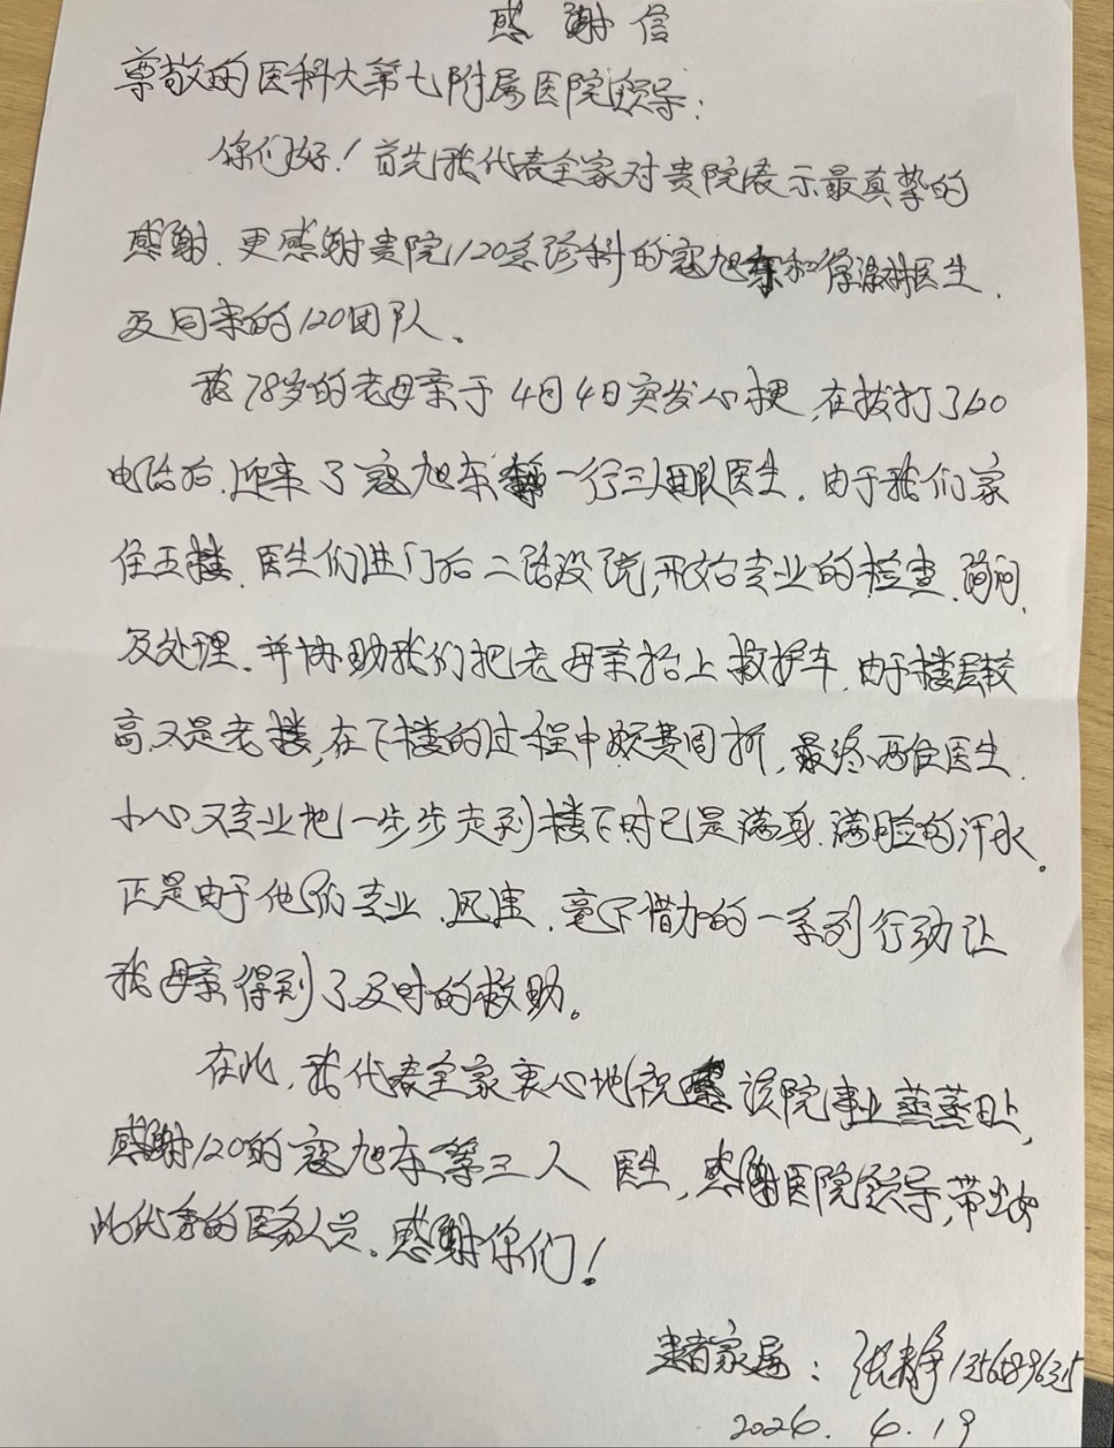 感谢信
尊敬的医科大第七附属医院领导:
你们好!首先我代表全家对贵院表示最真挚的
感谢.更感谢贵院120急诊科的寇旭东和医生.
及同来的120团队.
我78岁的老母亲于4月4日突发心梗,在拔打了120
电话后.迎来了寇旭东一行三人团队医生.由于我们家
住五楼.医生们进门后二话没说,开始专业的检查.询问.
及处理.并协助我们把老母亲抬上救护车.由于楼层较
高.又是老楼,在下楼的过程中颇费周折,最终两位医生.
小心又专业地一步步走到楼下时已是满身.满脸的汗水。
正是由于他们专业.迅速.毫不惜力的一系列行动让
我母亲得到了及时的救助。
在此,我代表全家衷心地祝该院事业蒸蒸日上,
感谢120的寇旭东等三人 医生,感谢医院领导,带出如
此优秀的医务人员.感谢你们!
患者家属:张静
2026.4.19